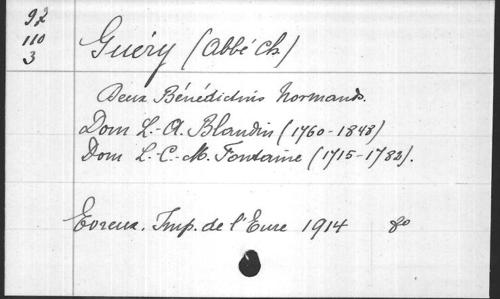 92
110
3
Guéry (Abbé Ch)
Deux Bénédictins Normands.
Dom L.-A. Blandin (1760-1848)
Dom L.-C.-M. Fontaine (1715-1782).
Evreux. Imp. de l'Eure 1914 8o